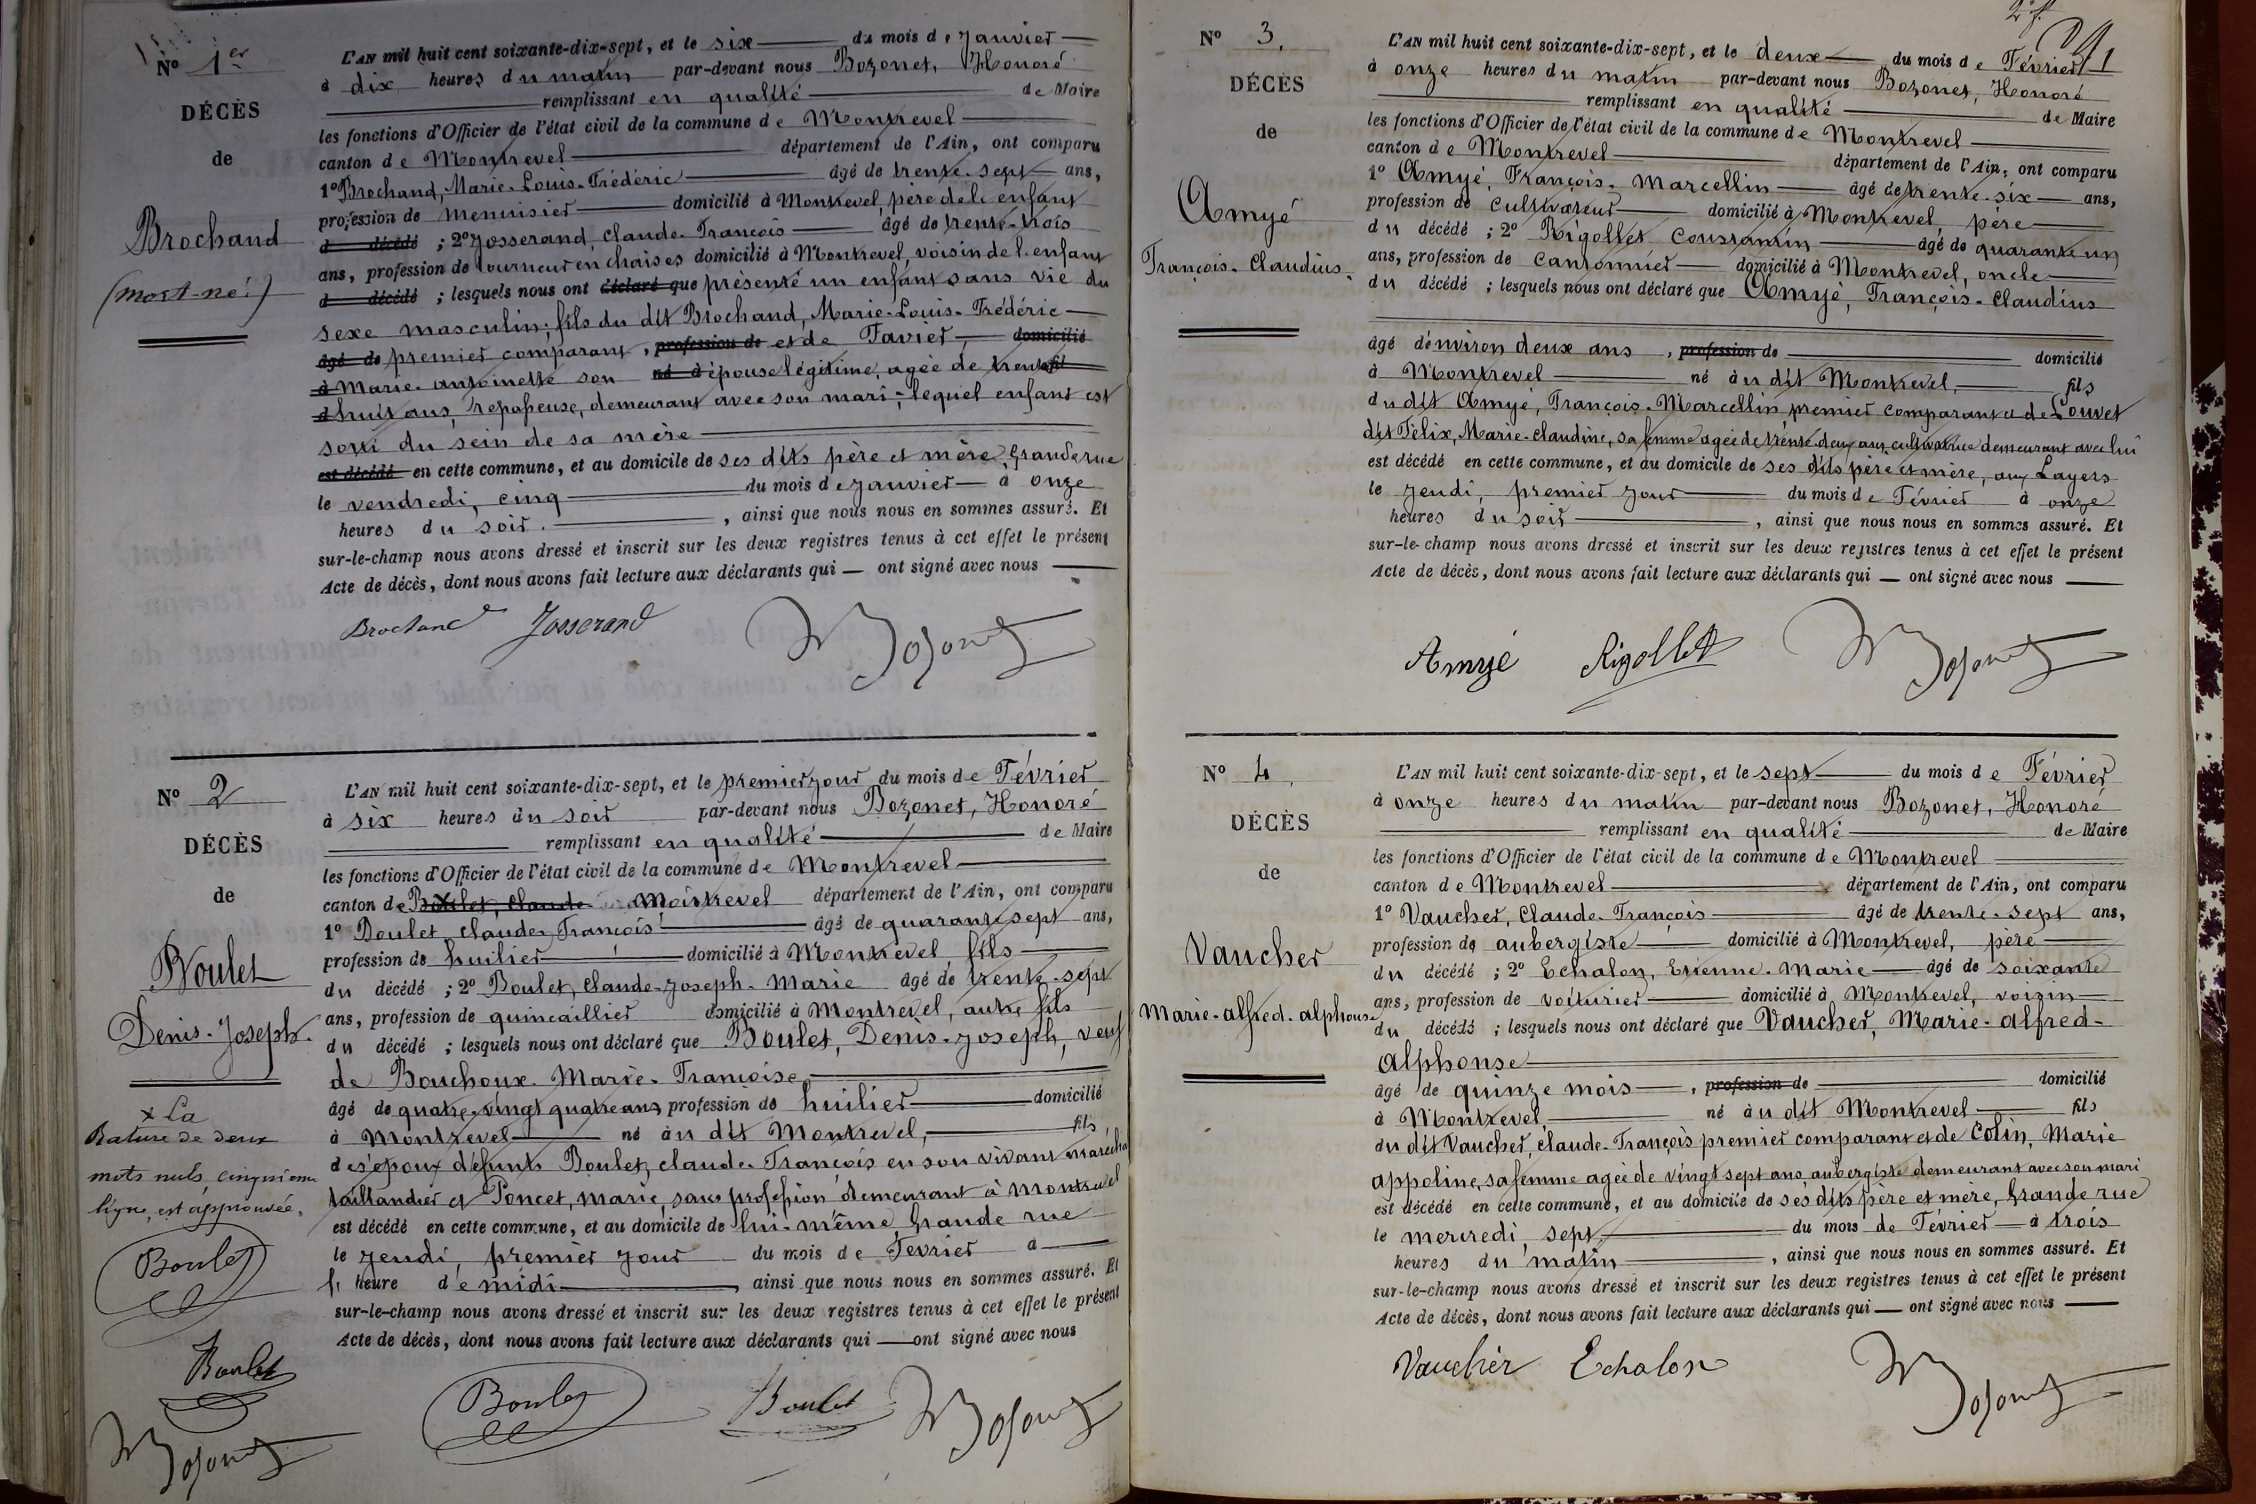 Nº 1er
DÉCÈS
de
Brochand
(mort-né)
L'AN mil huit cent soixante-dix-sept, et le six du mois de Janvier
à dix heures du matin par-devant nous Bozonet, Honoré
remplissant en qualité de Maire
les fonctions d'Officier de l'état civil de la commune de Montrevel
canton de Montrevel département de l'Ain, ont comparu
1º Brochand, Marie-Louis-Frédéric âgé de trente-sept ans,
profession de menuisier domicilié à Montrevel, père de l'enfant
d décédé ; 2º Josserand, Claude-François âgé de trente-trois
ans, profession de tourneur en chaises domicilié à Montrevel, voisin de l'enfant
d décédé ; lesquels nous ont déclaré que présenté un enfant sans vie du
sexe masculin, fils du dit Brochand, Marie-Louis-Frédéric
âgé de premier comparant, profession de et de Favier, domicilié
à Marie-antoinette son né à épouse légitime, agée de trente fil
d huit ans, repasseuse, demeurant avec son mari, lequel enfant est
sorti du sein de sa mère
est décédé en cette commune, et au domicile de ses dits père et mère, Grande rue
le vendredi, cinq du mois de Janvier à onze
heures du soir, ainsi que nous nous en sommes assuré. Et
sur-le-champ nous avons dressé et inscrit sur les deux registres tenus à cet effet le présent
Acte de décès, dont nous avons fait lecture aux déclarants qui ont signé avec nous
Brochand Josserand Bozonet
Nº 2
DÉCÈS
de
Boulet
Denis-Joseph.
x La
Rature de deux
mots nuls, cinquième
ligne, est approuvée.
Boulet
Boulet
Bozonet
L'AN mil huit cent soixante-dix-sept, et le premier jour du mois de Février
à six heures du soir par-devant nous Bozonet, Honoré
remplissant en qualité de Maire
les fonctions d'Officier de l'état civil de la commune de Montrevel
canton de Boulet, Claude x Montrevel département de l'Ain, ont comparu
1º Boulet, Claude-François âgé de quarante-sept ans,
profession de huilier domicilié à Montrevel, fils
du décédé ; 2º Boulet, Claude-Joseph-Marie âgé de trente-sept
ans, profession de quincaillier domicilié à Montrevel, autre fils
du décédé ; lesquels nous ont déclaré que Boulet, Denis-Joseph, veuf
de Bouchoux Marie-Françoise,
âgé de quatre-vingt quatre ans, profession de huilier domicilié
à Montrevel né au dit Montrevel, fils
des époux défunts Boulet, Claude-François en son vivant maréchal
taillandier et Poncet, marie, sans profession demeurant à Montrevel
est décédé en cette commune, et au domicile de lui-même, Grande rue
le Jeudi, premier jour du mois de Février à
l' heure de midi, ainsi que nous nous en sommes assuré. Et
sur-le-champ nous avons dressé et inscrit sur les deux registres tenus à cet effet le présent
Acte de décès, dont nous avons fait lecture aux déclarants qui ont signé avec nous
Boulet Boulet Bozonet
2e f.
Nº 3.
DÉCÈS
de
Amyé
François-Claudius
L'AN mil huit cent soixante-dix-sept, et le deux du mois de Février
à onze heures du matin par-devant nous Bozonet, Honoré
remplissant en qualité de Maire
les fonctions d'Officier de l'état civil de la commune de Montrevel
canton de Montrevel département de l'Ain, ont comparu
1º Amyé, François-Marcellin âgé de trente-six ans,
profession de cultivateur domicilié à Montrevel, père
du décédé ; 2º Rigollet Constantin âgé de quarante un
ans, profession de cantonnier domicilié à Montrevel, oncle
du décédé ; lesquels nous ont déclaré que Amyé, François-Claudius
âgé d'environ deux ans, profession de domicilié
à Montrevel né au dit Montrevel, fils
du dit Amyé, François-Marcellin premier comparant et de Louvet
dit Félix, Marie-Claudine, sa femme agée de trente-deux ans, cultivatrice demeurant avec lui
est décédé en cette commune, et au domicile de ses dits père et mère, aux Layers
le Jeudi, premier jour du mois de Février à onze
heures du soir, ainsi que nous nous en sommes assuré. Et
sur-le-champ nous avons dressé et inscrit sur les deux registres tenus à cet effet le présent
Acte de décès, dont nous avons fait lecture aux déclarants qui ont signé avec nous
Amyé Rigollet Bozonet
Nº 4.
DÉCÈS
de
Vaucher
Marie-alfred-alphonse
L'AN mil huit cent soixante-dix-sept, et le sept du mois de Février
à onze heures du matin par-devant nous Bozonet, Honoré
remplissant en qualité de Maire
les fonctions d'Officier de l'état civil de la commune de Montrevel
canton de Montrevel département de l'Ain, ont comparu
1º Vaucher, Claude-François âgé de trente-sept ans,
profession de aubergiste domicilié à Montrevel, père
du décédé ; 2º Echalon, Etienne-Marie âgé de soixante
ans, profession de voiturier domicilié à Montrevel, voisin
du décédé ; lesquels nous ont déclaré que Vaucher, Marie-alfred-
alphonse
âgé de quinze mois, profession de domicilié
à Montrevel, né au dit Montrevel fils
du dit Vaucher, Claude-François premier comparant et de Colin, Marie
appoline, sa femme agée de vingt sept ans, aubergiste demeurant avec son mari
est décédé en cette commune, et au domicile de ses dits père et mère, Grande rue
le mercredi, sept, du mois de Février à trois
heures du matin, ainsi que nous nous en sommes assuré. Et
sur-le-champ nous avons dressé et inscrit sur les deux registres tenus à cet effet le présent
Acte de décès, dont nous avons fait lecture aux déclarants qui ont signé avec nous
Vaucher Echalon Bozonet